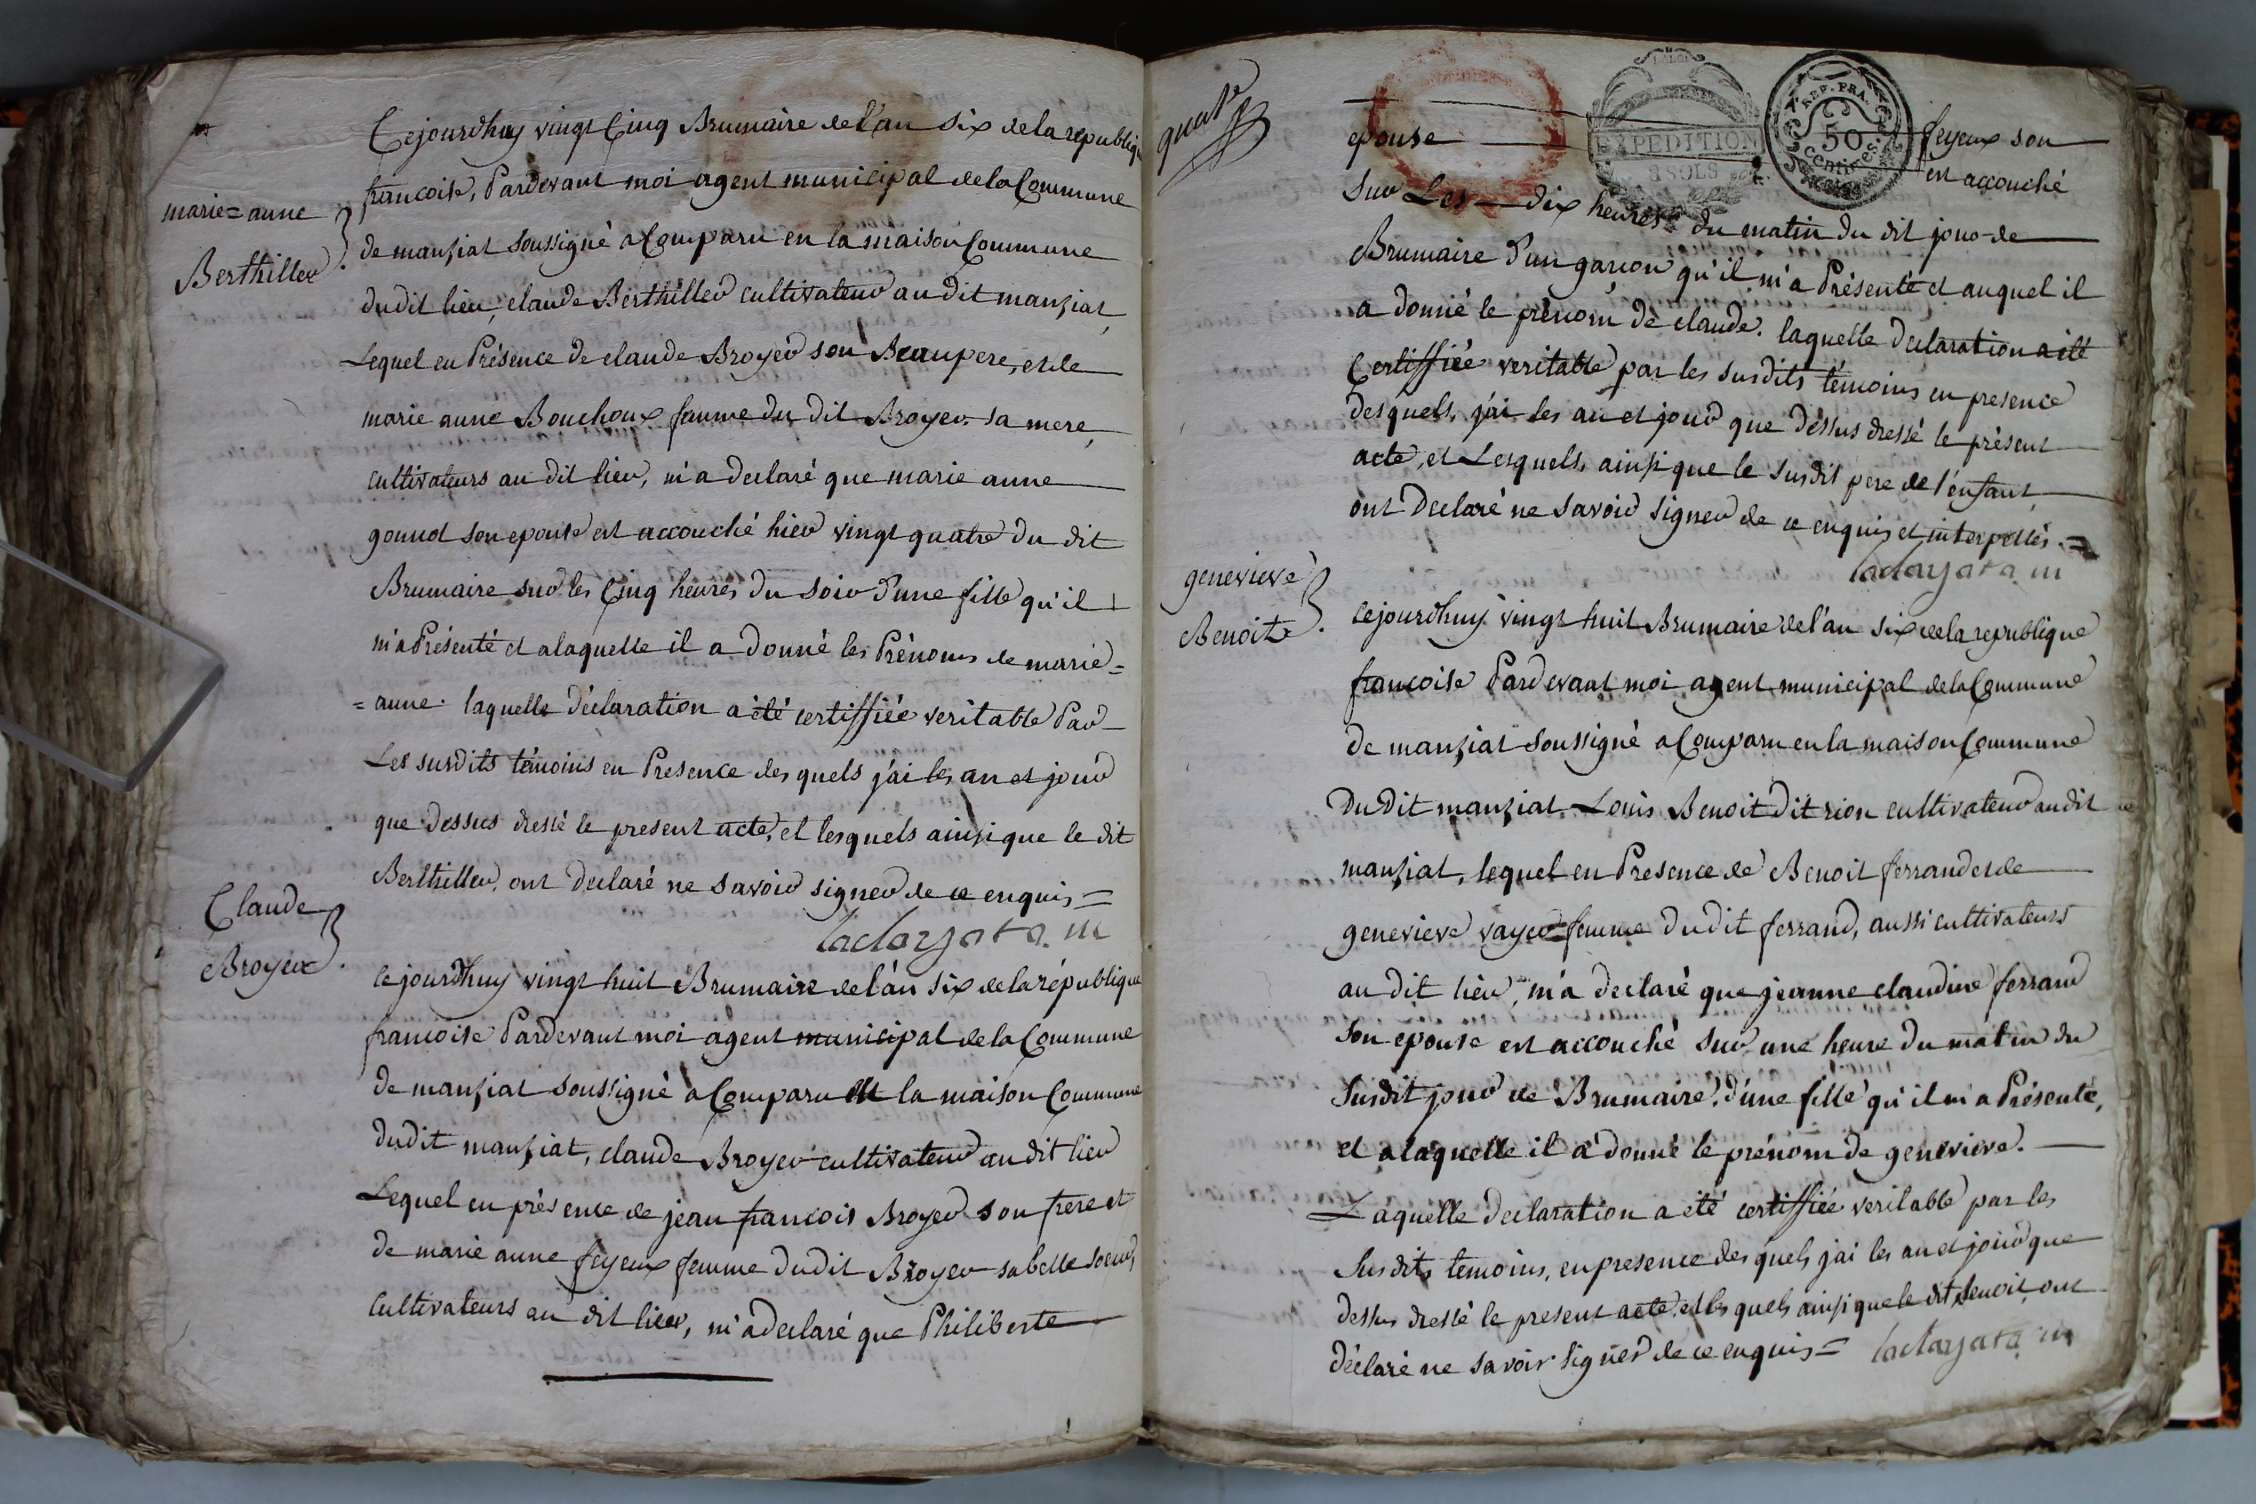 Cejourdhuy vingt Cinq Brumaire de l'an six de la republiq
francoise, Pardevant moi agent municipal de la Commune
marie=anne
Berthiller
de manziat soussigné a Comparu en la maison Commune
dudit lieu, claude Berthiller cultivateur au dit manziat,
Lequel en Présence de claude Broyer son Beaupere, et de
marie anne Bouchoux famme du dit Broyer sa mere,
cultivateurs au dit lieu, m'a declaré que marie anne
gounot son epouse est accouché hier vingt quatre du dit
Brumaire sur les Cinq heures du soir d'une fille qu'il
m'a Présenté et alaquelle il a donné les Prénoms de marie=
=anne. laquelle déclaration a été certiffiée veritable Par
Les susdits témoins en Presence des quels j'ai les an et jour
que dessus dressé le present acte, et lesquels ainsi que le dit
Berthiller, ont declaré ne savoir signer de ce enquis =
Claude
Broyer
cejourdhuy vingt huit Brumaire de l'an six de la république
francoise Pardevant moi agent municipal de la Commune
de manziat soussigné a Comparu en la maison Commune
dudit manziat, claude Broyer cultivateur au dit lieu
Lequel en présence de jean francois Broyer son frere et
de marie anne feyeux femme dudit Broyer sa belle soeur,
Cultivateurs au dit lieu, m'a declaré que Philiberte
quatre
EXPEDITION
3 SOLS
REP. FRA.
50
Centimes
feyeux son
epouse est accouché
sur Les dix heures du matin du dit jour de
Brumaire d'un garcon qu'il m'a Présenté et auquel il
a donné le prénom de claude. laquelle declaration a été
Certiffiée veritable par les susdits témoins en presence
desquels, j'ai les an et jour que dessus dressé le présent
acte, et Lesquels, ainsi que le susdit pere de l'enfant
ont Declaré ne savoir signer de ce enquis et interpellés. =
genevieve
Benoit
cejourdhuy vingt huit Brumaire de l'an six de la republique
francoise Pardevant moi agent municipal de la Commune
de manziat soussigné a Comparu en la maison Commune
du dit manziat Louis Benoit dit rion cultivateur au dit
manziat, lequel en Presence de Benoit ferrand et de
genevieve vayer femme du dit ferrand, aussi cultivateurs
au dit lieu, m'a declaré que jeanne claudine ferrand
son epouse est accouché sur une heure du matin du
susdit jour de Brumaire, d'une fille qu'il m'a Présenté,
et alaquelle il a donné le prénom de genevieve.
Laquelle declaration a été certiffiée veritable par les
susdits temoins, en presence des quels j'ai les an et jour que
dessus dressé le present acte, et les quels ainsi que le dit Benoit ont
déclaré ne savoir signer de ce enquis =